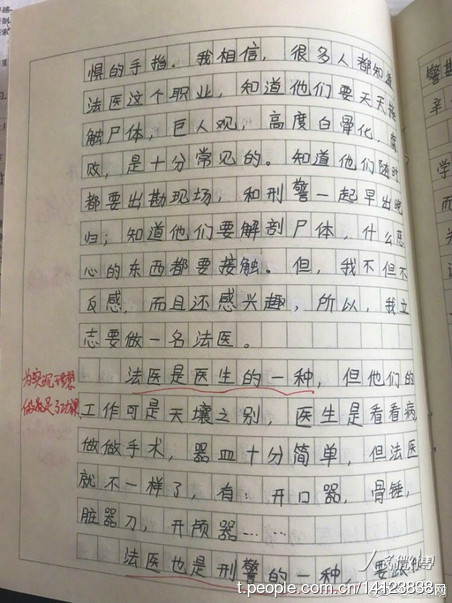 惧的手指。我相信，很多人都知道
法医这个职业，知道他们要天天接
触尸体，巨人观，高度白骨化，腐
败，是十分常见的。知道他们随时
都要出勘现场，和刑警一起早出晚
归；知道他们要解剖尸体，什么恶
心的东西都要接触。但，我不但不
反感，而且还感兴趣，所以，我立
志要做一名法医。
法医是医生的一种，但他们的
工作可是天壤之别，医生是看看病，
做做手术，器皿十分简单，但法医
就不一样了，有：开口器，骨锤，
脏器刀，开颅器……
法医也是刑警的一种，要
为实现理想
做足了功课
警
辛
学
而
t.people.com.cn/14123838